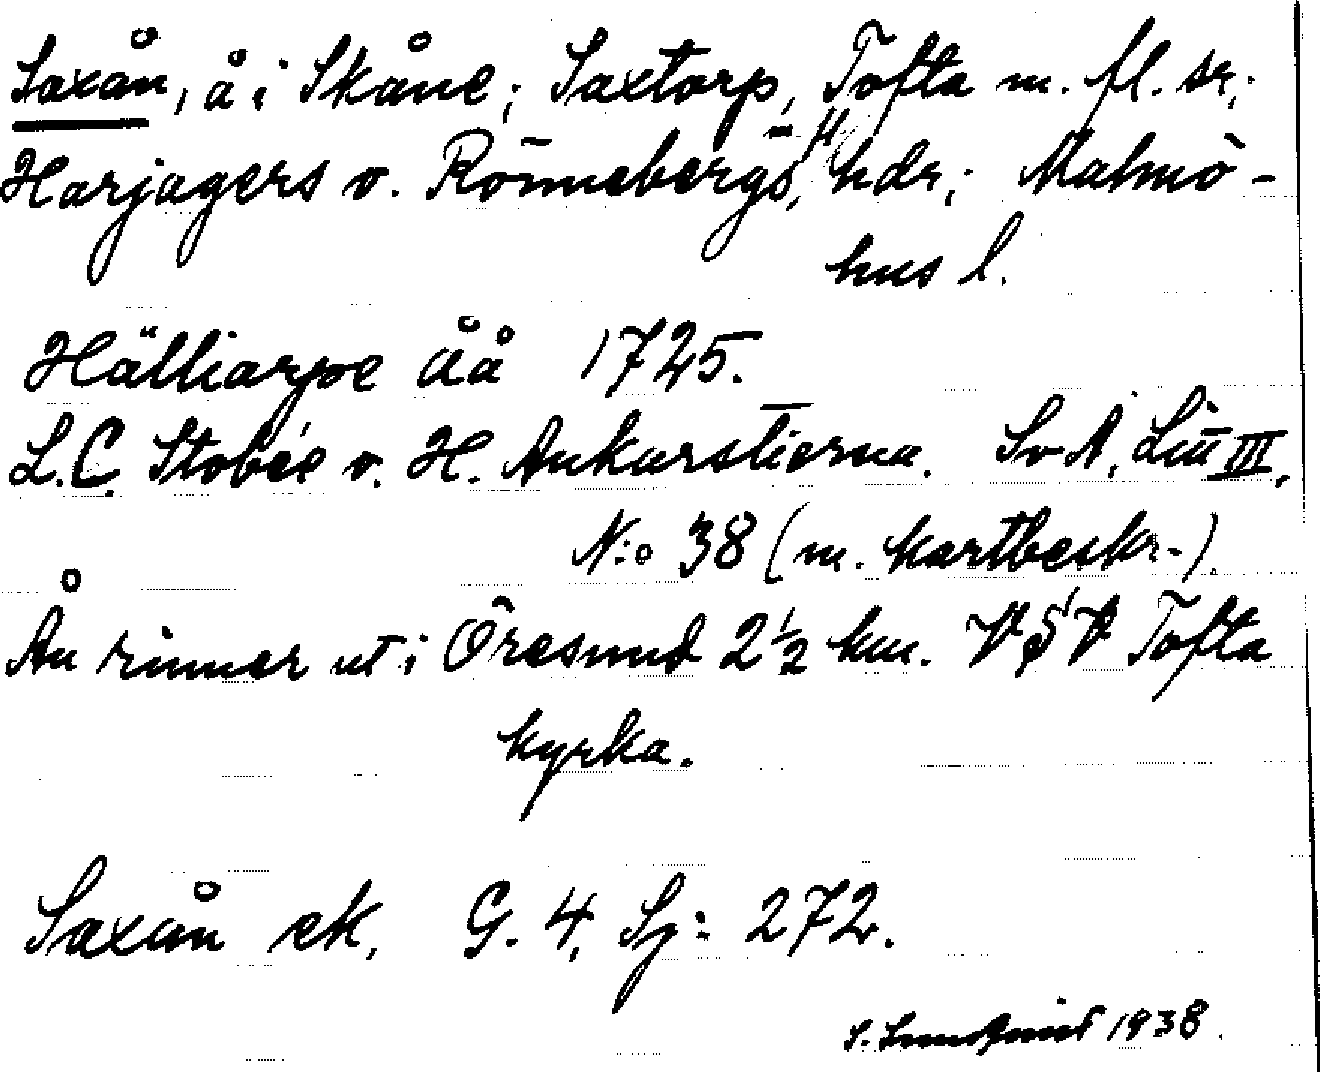 Saxån, å i Skåne; Saxtorp, Tofta m. fl. sr;
Harjagers o. Rönnebergs hdr; Malmö-
hus l.
Hälliarpe Åå 1725.
L.C. Stobée o. H. Ankarstierna. SvA, Litt III,
N:o 38 (m. kartbeskr.)
Ån rinner ut i Öresund 2½ km. V Tofta
kyrka.
Saxån ek, G. 4, Sj: 272.
1938.